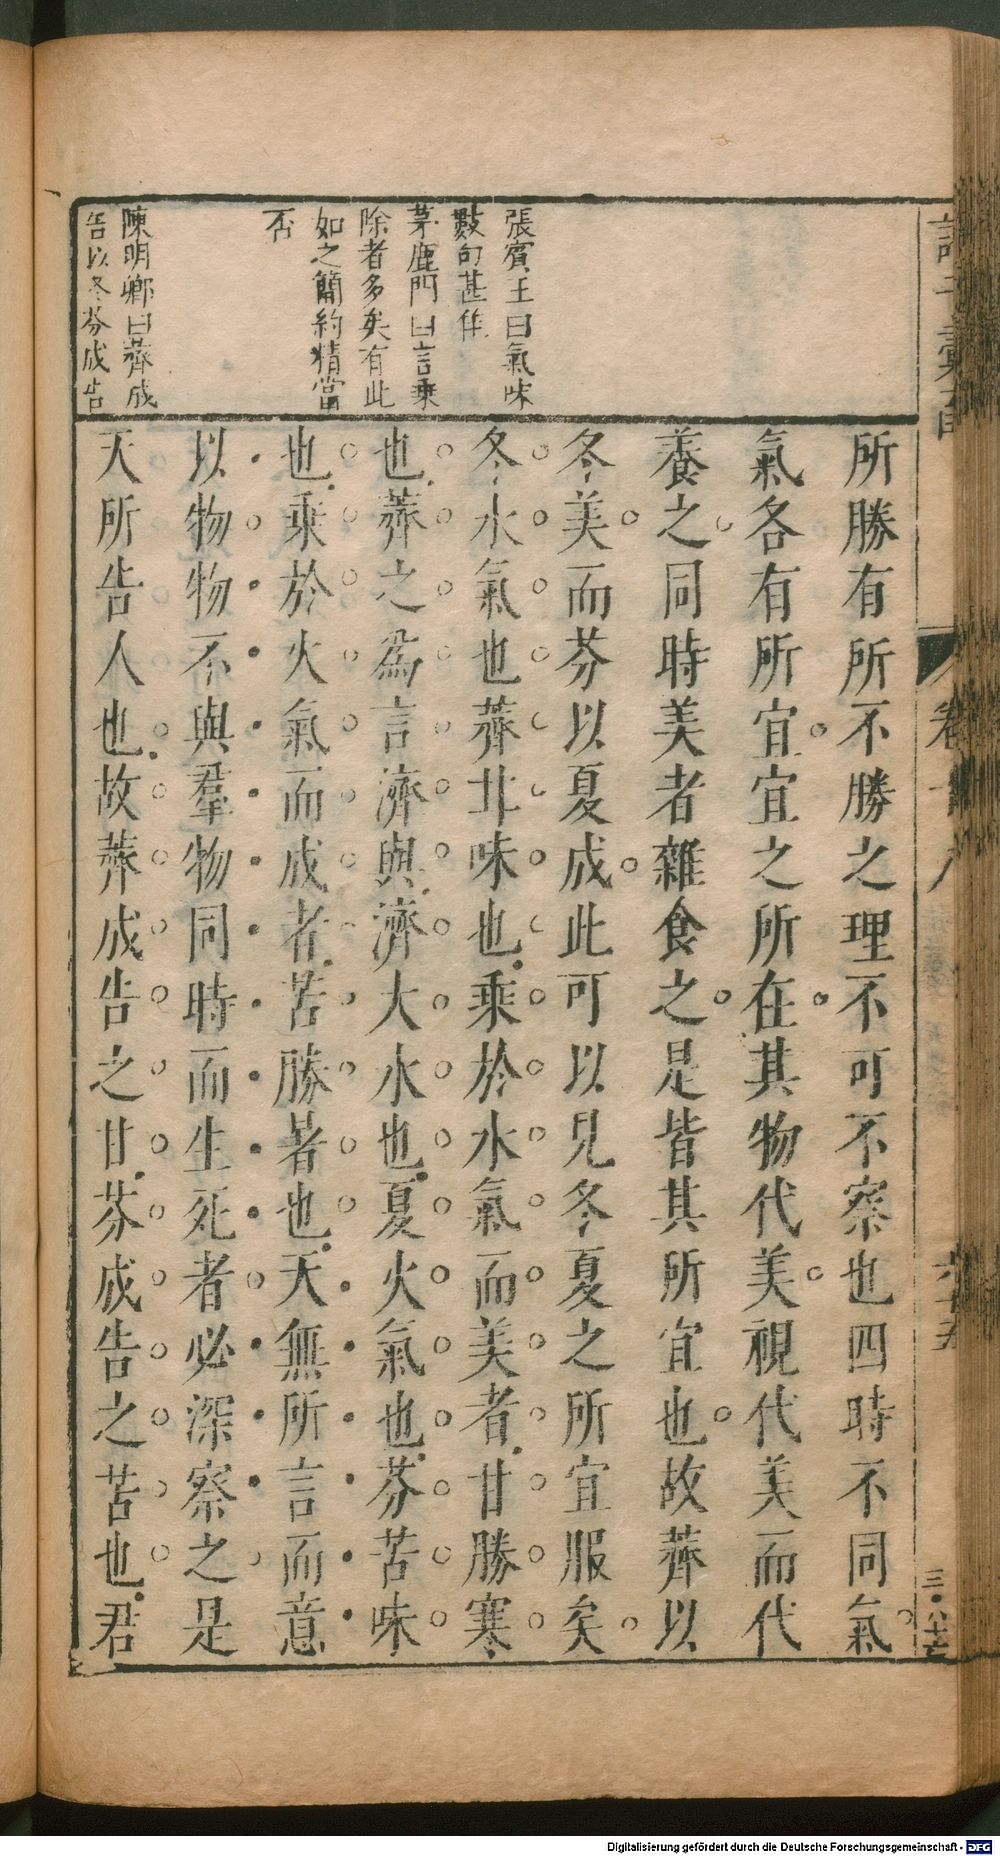 張賓王曰氣味
數句甚佳
茅鹿門曰言乘
除者多矣有此
如之簡約精當
否
陳明卿曰薺成
告以冬芬成告
所勝有所不勝之理不可不察也四時不同氣
氣各有所宜宜之所在其物代美視代美而代
養之同時美者雜食之是皆其所宜也故薺以
冬美而芬以夏成此可以見冬夏之所宜服矣
冬水氣也薺甘味也乘於水氣而美者甘勝寒
也薺之爲言濟與濟大水也夏火氣也芬苦味
也乘於火氣而成者苦勝暑也天無所言而意
以物物不與羣物同時而生死者必深察之是
天所告人也故薺成告之甘芬成告之苦也君
卷
六十五
Digitalisierung gefördert durch die Deutsche Forschungsgemeinschaft - DFG